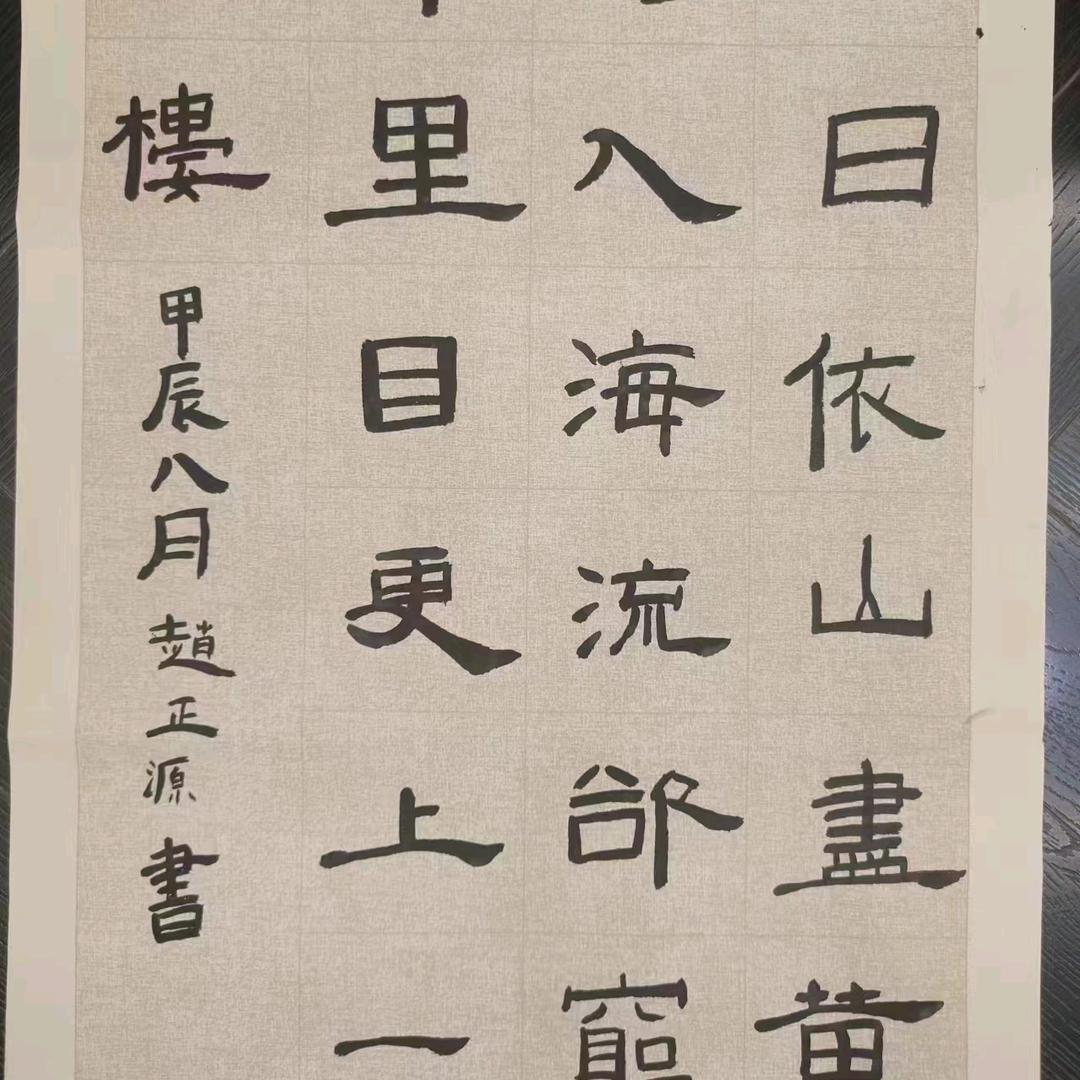 日依山盡黃
入海流郤窮
里目更上一
樓
甲辰八月趙正源書